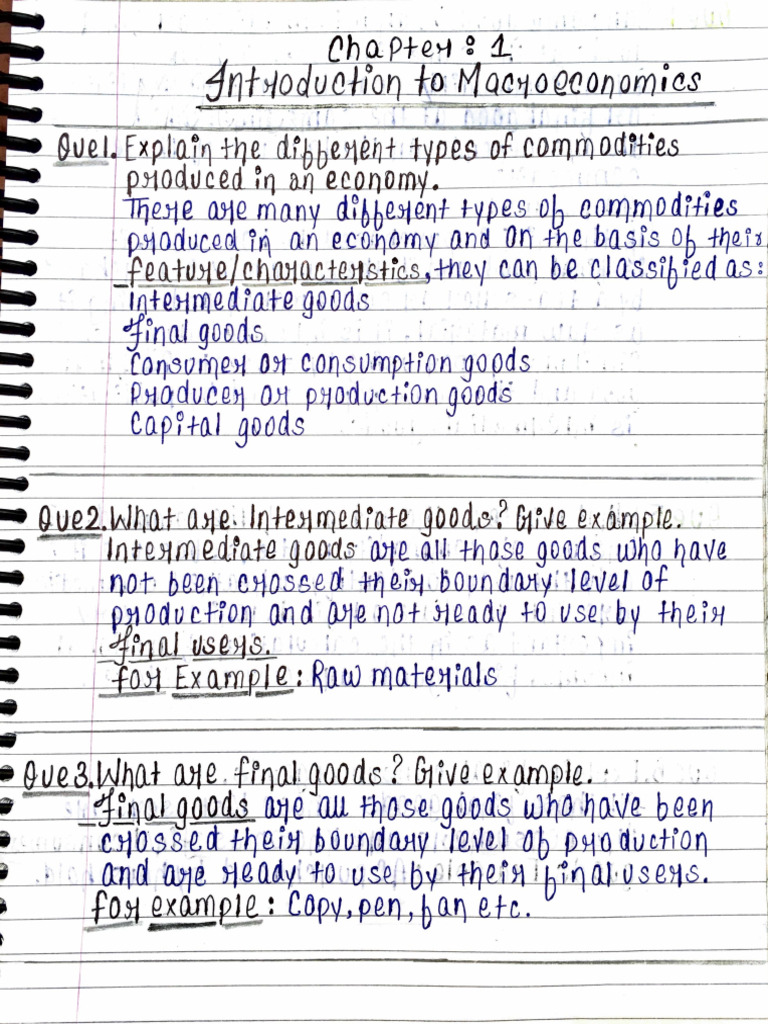 Chapter : 1
Introduction to Macroeconomics
Que1. Explain the different types of commodities
produced in an economy.
There are many different types of commodities
produced in an economy and on the basis of their
feature/characteristics, they can be classified as:
Intermediate goods
Final goods
Consumer or consumption goods
Producer or production goods
Capital goods
Que2. What are Intermediate goods? Give example.
Intermediate goods are all those goods who have
not been crossed their boundary level of
production and are not ready to use by their
final users.
For Example: Raw materials
Que3. What are final goods? Give example.
Final goods are all those goods who have been
crossed their boundary level of production
and are ready to use by their final users.
For example: Copy, pen, fan etc.